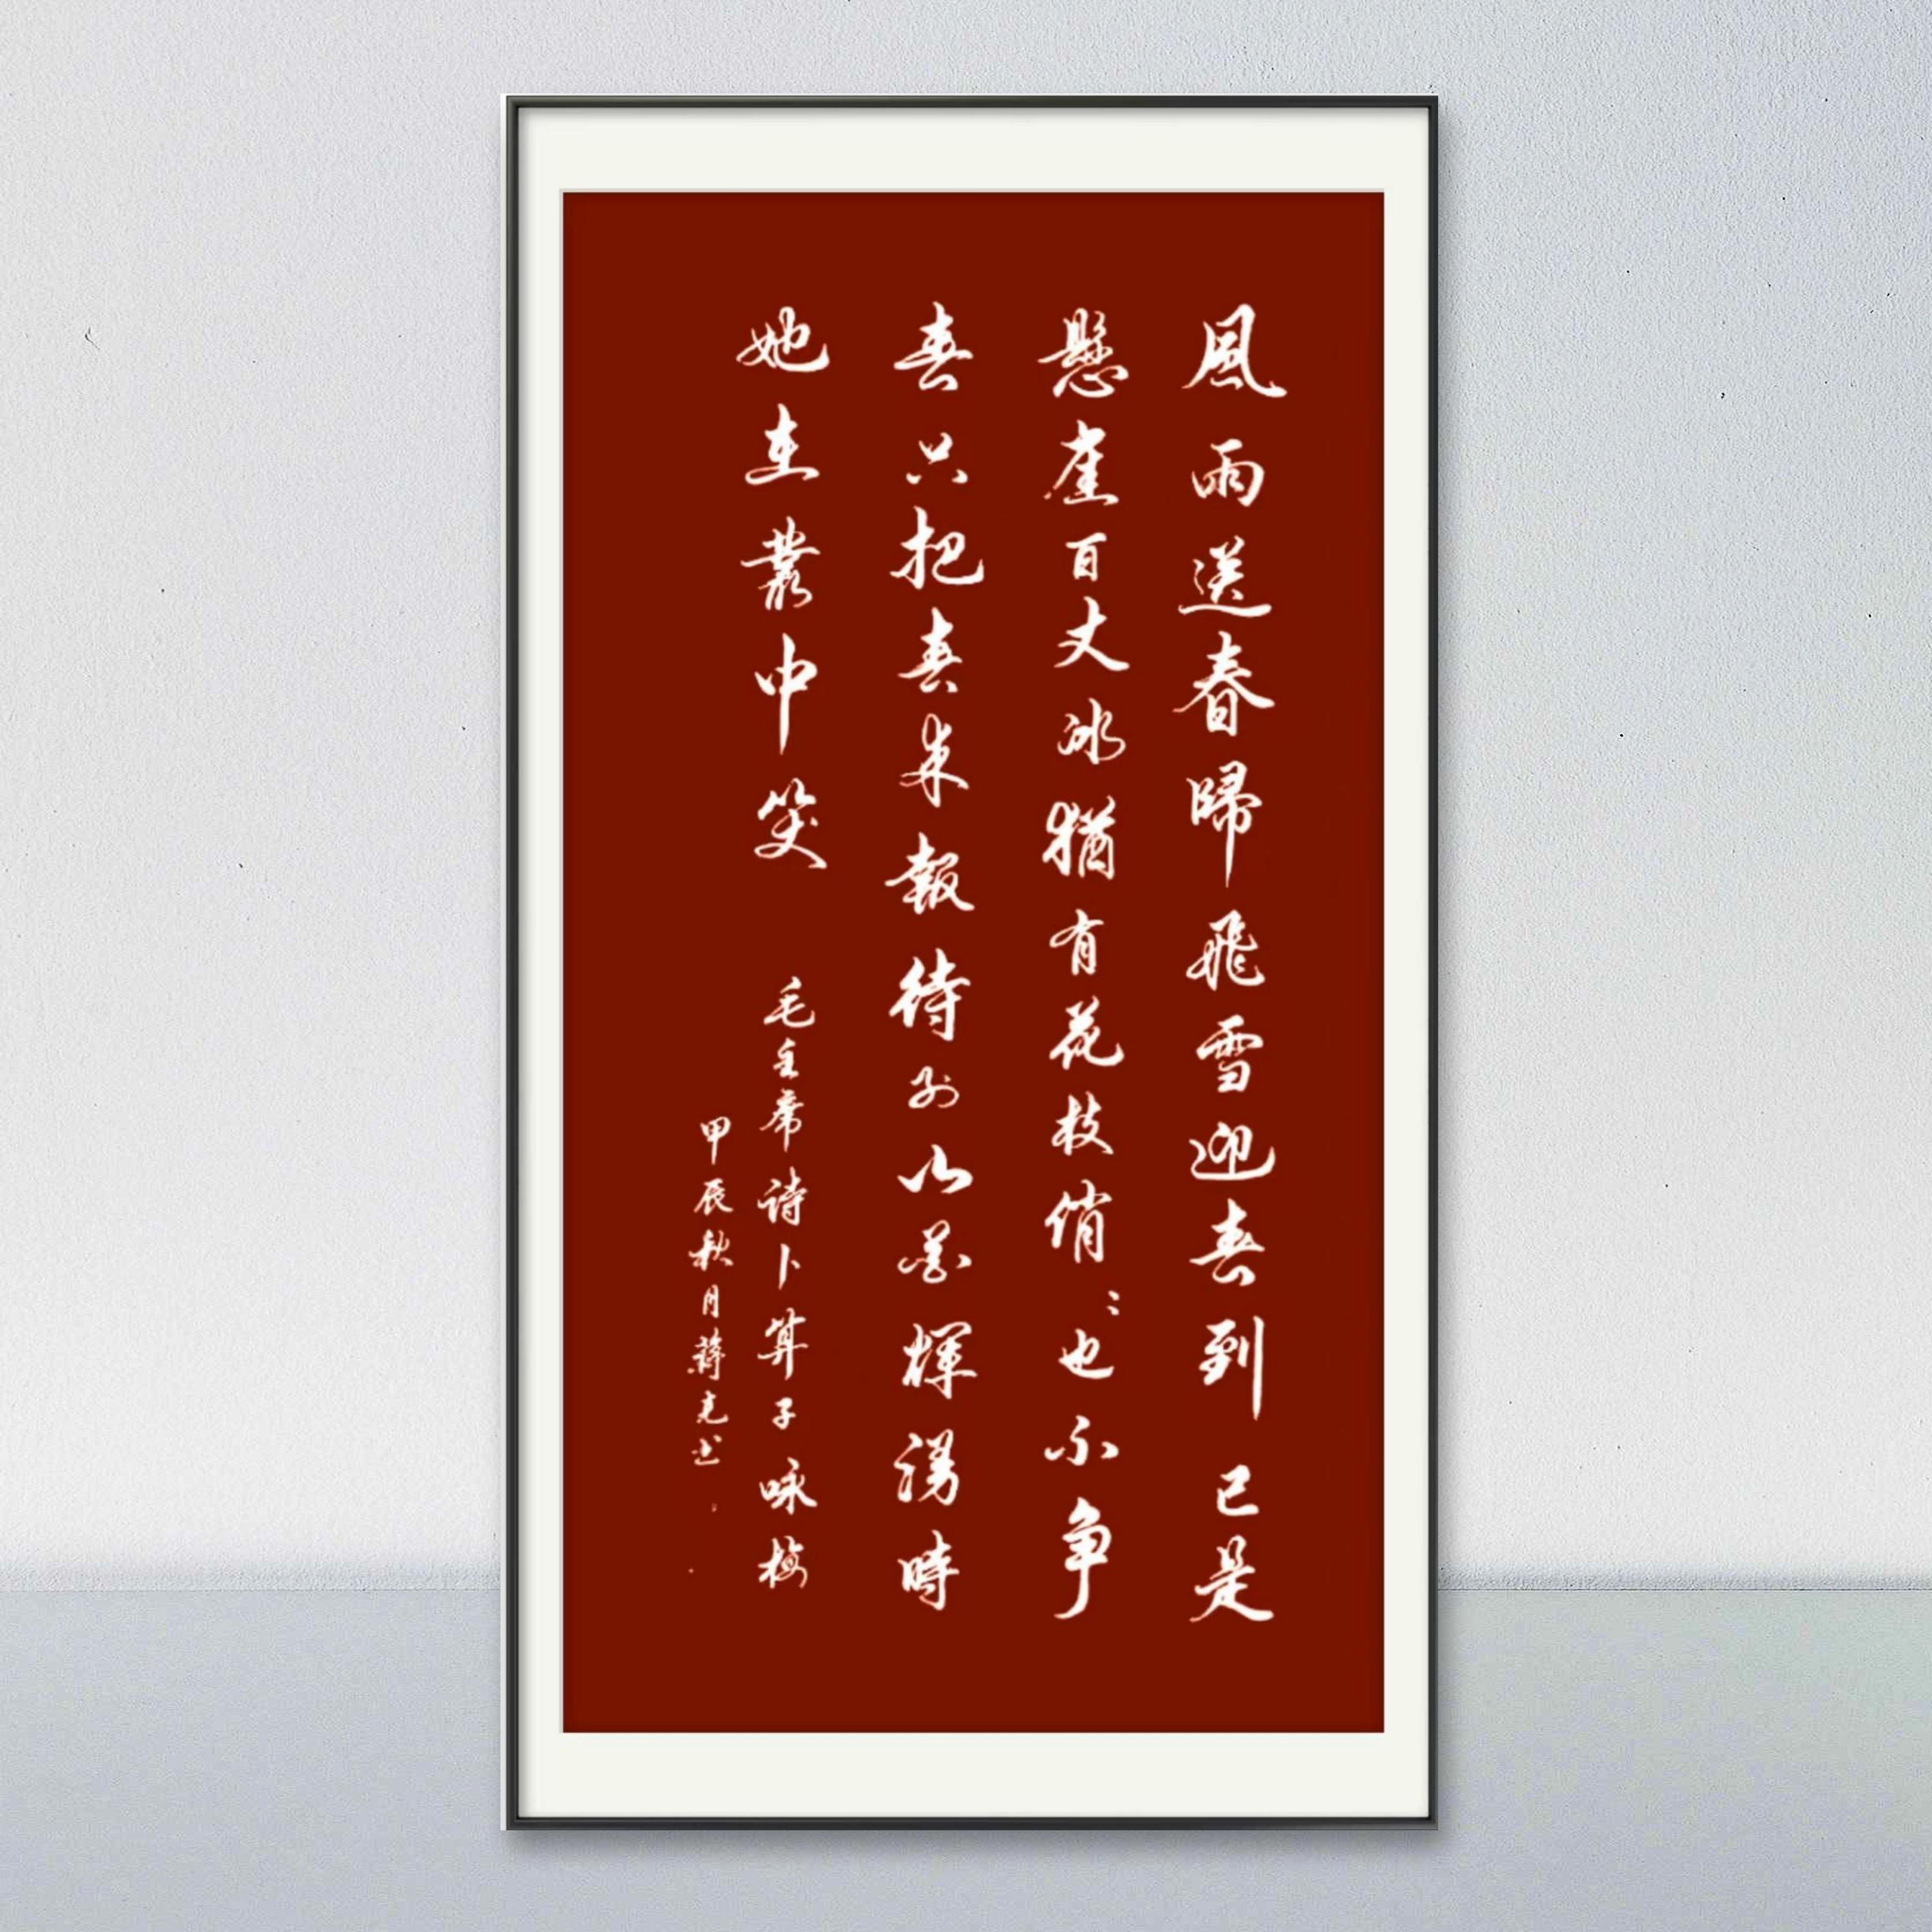 風雨送春歸飛雪迎春到已是
懸崖百丈冰猶有花枝俏〻也不争
春只把春来報待到山花爛漫時
她在叢中笑
毛主席诗卜算子咏梅
甲辰秋月蒋克书